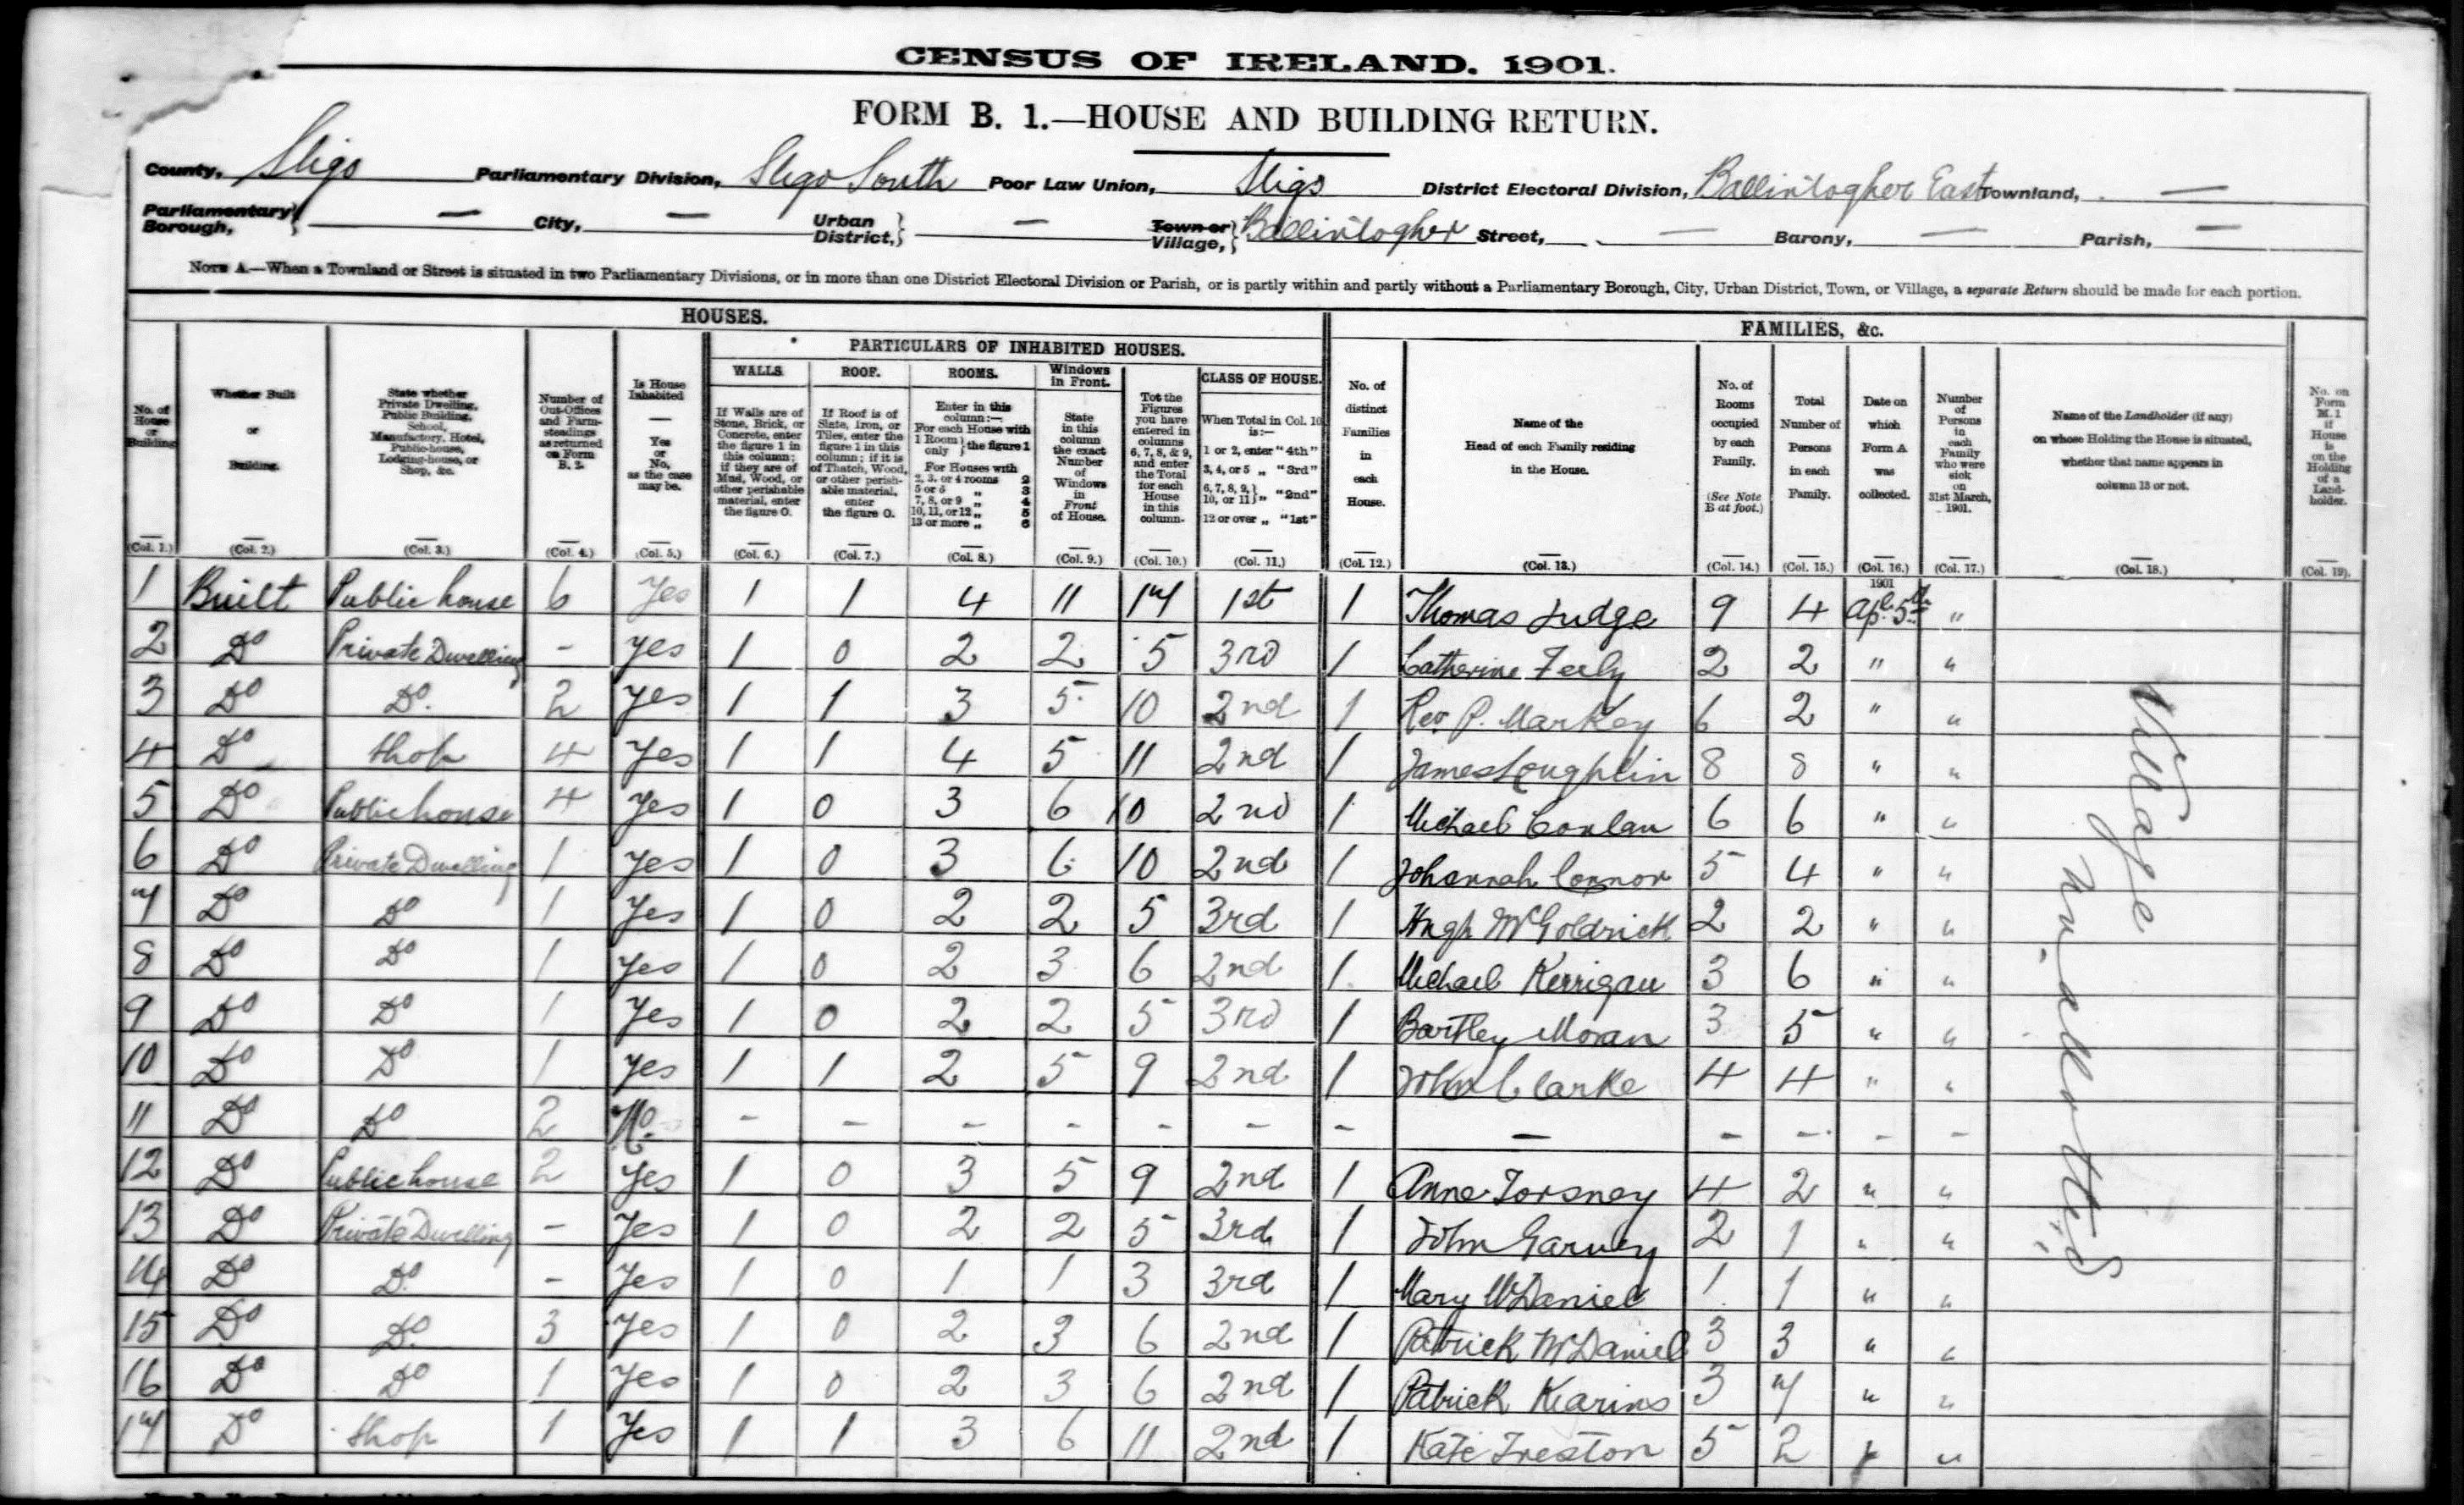 CENSUS OF IRELAND, 1901.
FORM B. 1.—HOUSE AND BUILDING RETURN.
County, Sligo Parliamentary Division, Sligo South Poor Law Union, Sligo District Electoral Division, Ballintogher East Townland, —
Parliamentary Borough, — City, — Urban District, — Town or Village, Ballintogher Street, — Barony, — Parish, —
NOTE A.—When a Townland or Street is situated in two Parliamentary Divisions, or in more than one District Electoral Division or Parish, or is partly within and partly without a Parliamentary Borough, City, Urban District, Town, or Village, a separate Return should be made for each portion.
HOUSES. FAMILIES, &c.
PARTICULARS OF INHABITED HOUSES.
WALLS. ROOF. ROOMS. Windows in Front. CLASS OF HOUSE.
No. of House or Building
Whether Built or Building.
State whether Private Dwelling, Public Building, School, Manufactory, Hotel, Public-house, Lodging-house, or Shop, &c.
Number of Out-Offices and Farm-steadings as returned on Form B. 2.
Is House Inhabited — Yes or No, as the case may be.
If Walls are of Stone, Brick, or Concrete, enter the figure 1 in this column; if they are of Mud, Wood, or other perishable material, enter the figure 0.
If Roof is of Slate, Iron, or Tiles, enter the figure 1 in this column; if it is of Thatch, Wood, or other perishable material, enter the figure 0.
Enter in this column:—
For each House with 1 Room only } the figure 1
For Houses with
2, 3, or 4 rooms 2
5 or 6 „ 3
7, 8, or 9 „ 4
10, 11, or 12 „ 5
13 or more „ 6
State in this column the exact Number of Windows in Front of House.
Tot the Figures you have entered in columns 6, 7, 8, & 9, and enter the Total for each House in this column.
When Total in Col. 10 is:—
1 or 2, enter "4th"
3, 4, or 5 „ "3rd"
6, 7, 8, 9, 10, or 11 } „ "2nd"
12 or over „ "1st"
No. of distinct Families in each House.
Name of the Head of each Family residing in the House.
No. of Rooms occupied by each Family. (See Note B at foot.)
Total Number of Persons in each Family.
Date on which Form A was collected.
Number of Persons in each Family who were sick on 31st March, 1901.
Name of the Landholder (if any) on whose Holding the House is situated, whether that name appears in column 13 or not.
No. on Form M. 1 if House is on the Holding of a Landholder.
(Col. 1.) (Col. 2.) (Col. 3.) (Col. 4.) (Col. 5.) (Col. 6.) (Col. 7.) (Col. 8.) (Col. 9.) (Col. 10.) (Col. 11.) (Col. 12.) (Col. 13.) (Col. 14.) (Col. 15.) (Col. 16.) (Col. 17.) (Col. 18.) (Col. 19).
1901
1 Built Public house 6 Yes 1 1 4 11 17 1st 1 Thomas Judge 9 4 Apl. 5th "
2 Do Private Dwelling - Yes 1 0 2 2 5 3rd 1 Catherine Feely 2 2 " "
3 Do Do. 2 Yes 1 1 3 5 10 2nd 1 Rev P. Markey 6 2 " "
4 Do Shop 4 Yes 1 1 4 5 11 2nd 1 James Loughlin 8 8 " "
5 Do Public house 4 Yes 1 0 3 6 10 2nd 1 Michael Conlan 6 6 " "
6 Do Private Dwelling 1 Yes 1 0 3 6 10 2nd 1 Johannah Connor 5 4 " "
7 Do Do 1 Yes 1 0 2 2 5 3rd 1 Hugh McGoldrick 2 2 " "
8 Do Do 1 Yes 1 0 2 3 6 2nd 1 Michael Kerrigan 3 6 " "
9 Do Do 1 Yes 1 0 2 2 5 3rd 1 Bartley Moran 3 5 " "
10 Do Do 1 Yes 1 1 2 5 9 2nd 1 John Clarke 4 4 " "
11 Do Do 2 No. - - - - - - - — - - - -
12 Do Public house 2 Yes 1 0 3 5 9 2nd 1 Anne Torsney 4 2 " "
13 Do Private Dwelling - Yes 1 0 2 2 5 3rd 1 John Garvey 2 1 " "
14 Do Do. - Yes 1 0 1 1 3 3rd 1 Mary McDaniel 1 1 " "
15 Do Do. 3 Yes 1 0 2 3 6 2nd 1 Patrick McDaniel 3 3 " "
16 Do Do 1 Yes 1 0 2 3 6 2nd 1 Patrick Kearins 3 7 " "
17 Do Shop 1 Yes 1 1 3 6 11 2nd 1 Kate Treston 5 2 " "
Village